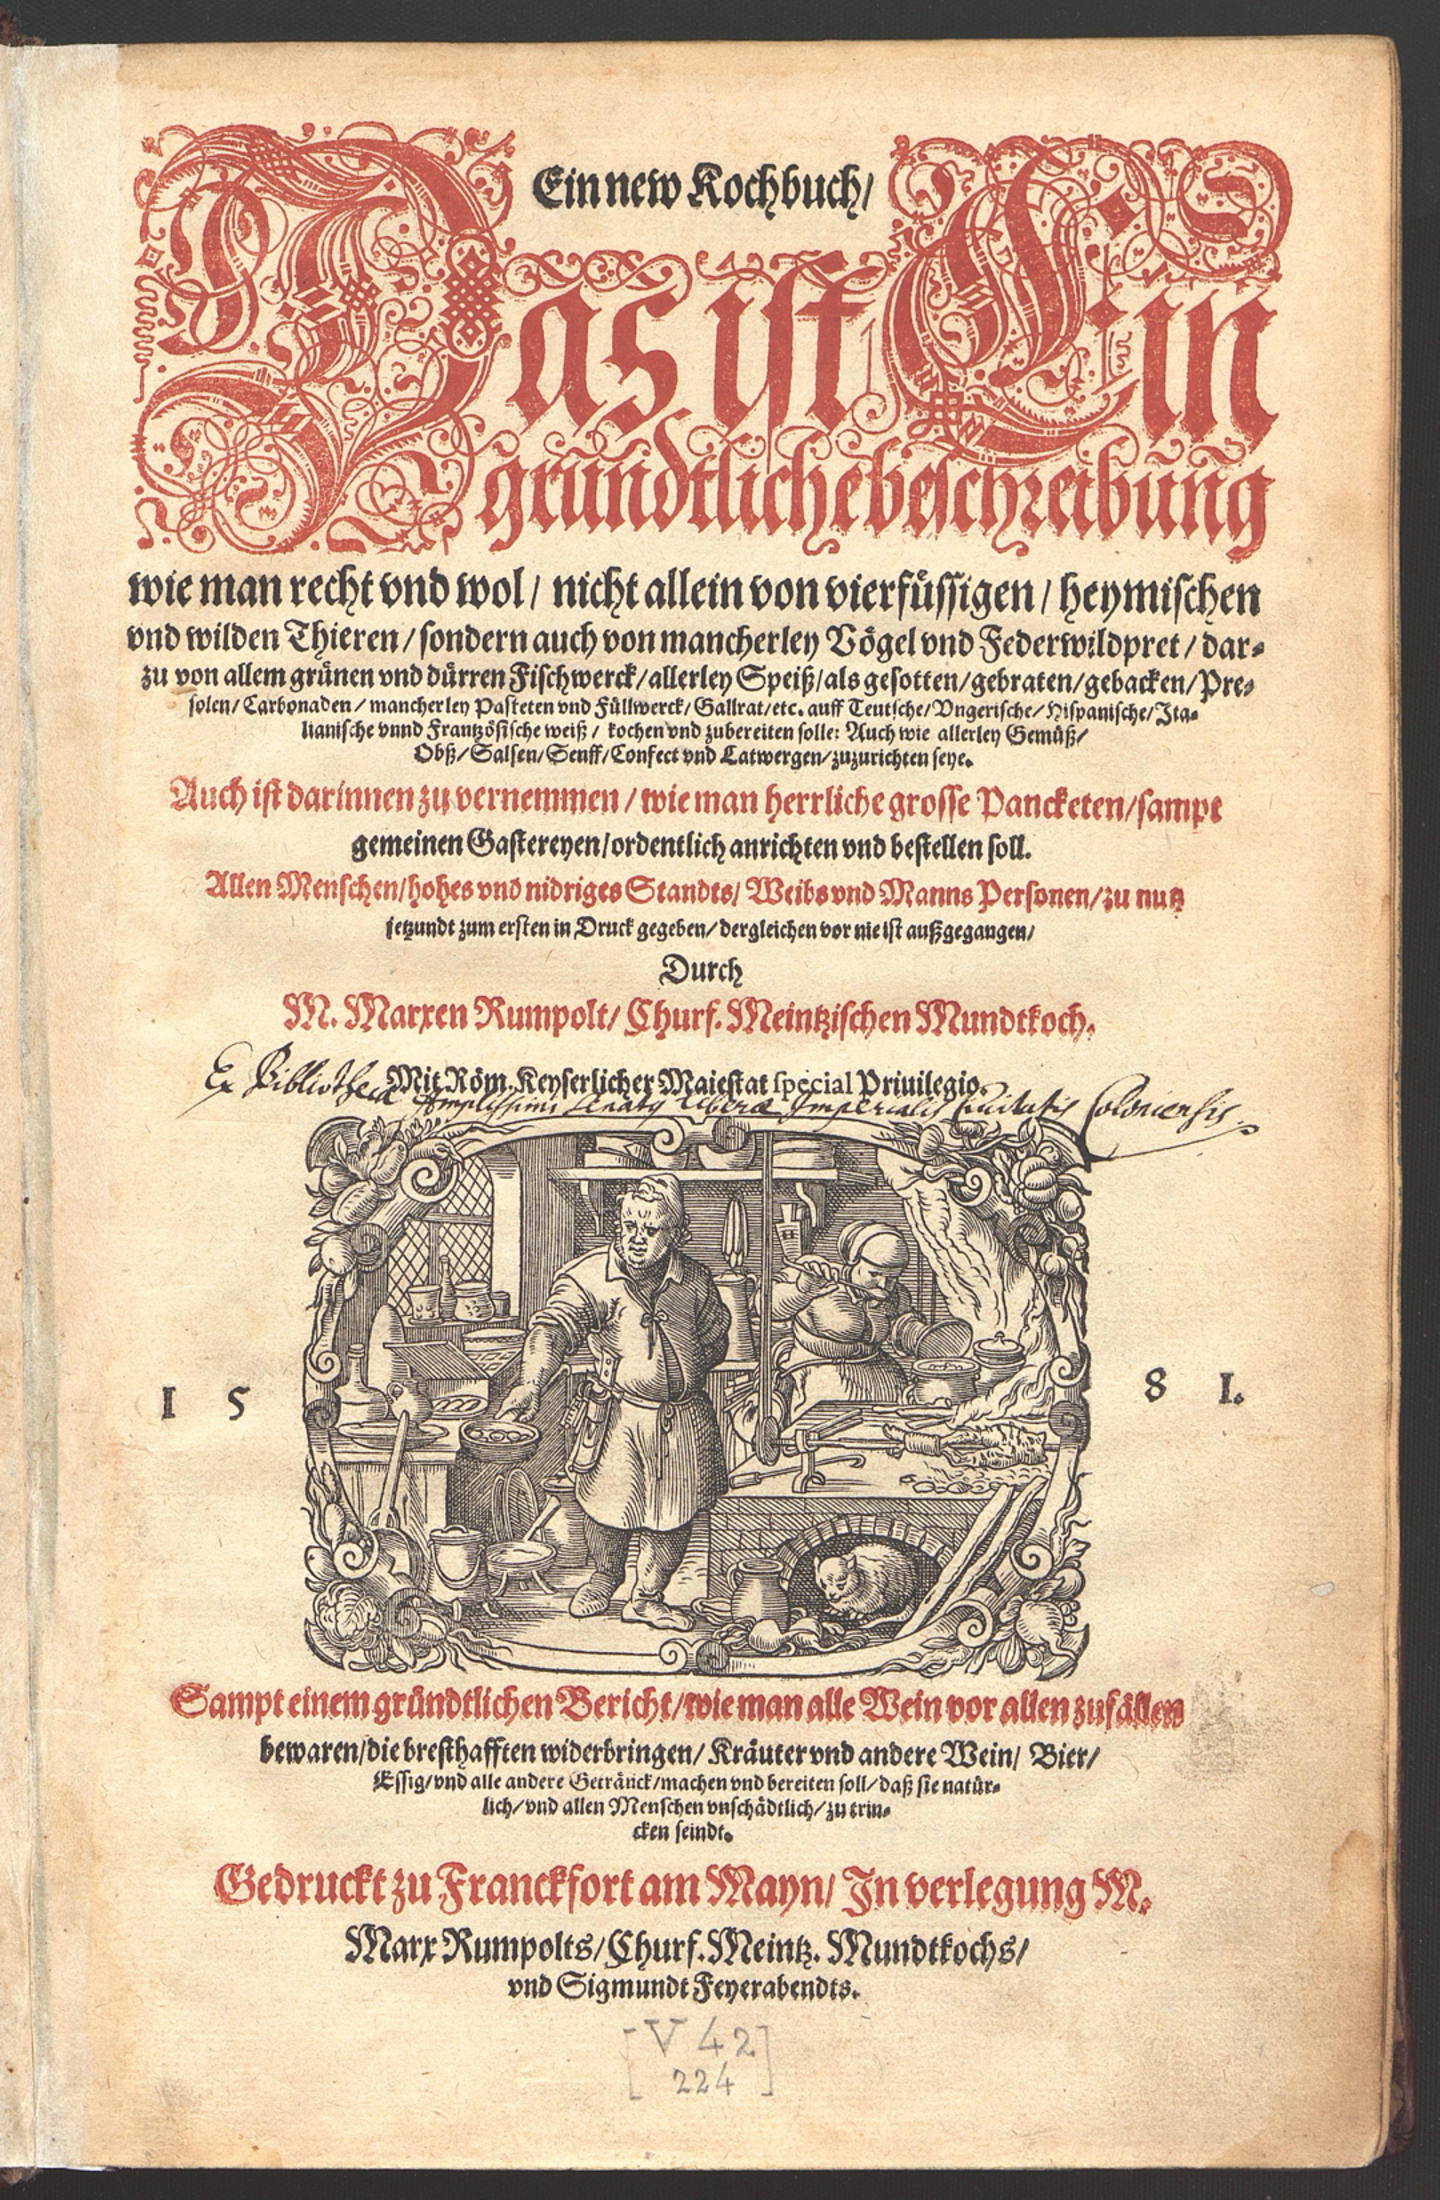 Ein new Kochbuch/
Das ist Ein
gründtliche beschreibung
wie man recht vnd wol/ nicht allein von vierfüssigen/ heymischen
vnd wilden Thieren/ sondern auch von mancherley Vögel vnd Federwildpret/ dar-
zu von allem grünen vnd dürren Fischwerck/ allerley Speiß/ als gesotten/ gebraten/ gebacken/ Pre-
solen/ Carbonaden/ mancherley Pasteten vnd Füllwerck/ Gallrat/ etc. auff Teutsche/ Vngerische/ Hispanische/ Ita-
lianische vnnd Frantzösische weiß/ kochen vnd zubereiten solle: Auch wie allerley Gemüß/
Obß/ Salsen/ Senff/ Confect vnd Latwergen/ zuzurichten seye.
Auch ist darinnen zu vernemmen/ wie man herrliche grosse Pancketen/ sampt
gemeinen Gastereyen/ ordentlich anrichten vnd bestellen soll.
Allen Menschen/ hohes vnd nidriges Standts/ Weibs vnd Manns Personen/ zu nutz
jetzundt zum ersten in Druck gegeben/ dergleichen vor nie ist außgegangen/
Durch
M. Marxen Rumpolt/ Churf. Meintzischen Mundtkoch.
Mit Röm. Keyserlicher Maiestat special Priuilegio.
Ex Bibliotheca Amplissimi Senatus Liberæ Imperialis Ciuitatis Coloniensis.
1 5 8 1.
Sampt einem gründtlichen Bericht/ wie man alle Wein vor allen zufällen
bewaren/ die bresthafften widerbringen/ Kräuter vnd andere Wein/ Bier/
Essig/ vnd alle andere Getränck/ machen vnd bereiten soll/ daß sie natür-
lich/ vnd allen Menschen vnschädtlich/ zu trin-
cken seindt.
Gedruckt zu Franckfort am Mayn/ In verlegung M.
Marx Rumpolts/ Churf. Meintz. Mundtkochs/
vnd Sigmundt Feyerabendts.
[V 42
224]